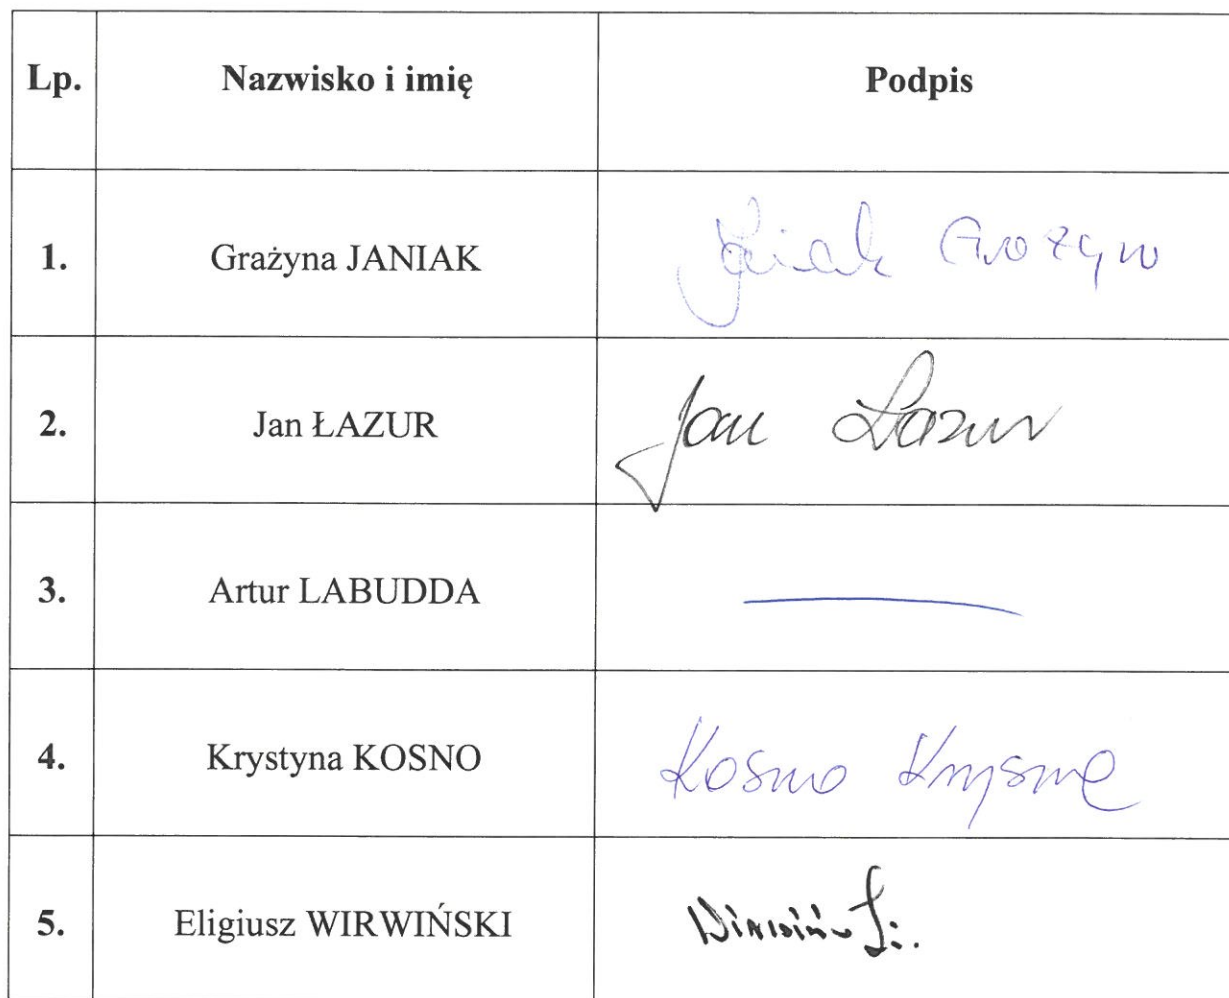 Lp. Nazwisko i imię Podpis
1. Grażyna JANIAK Janiak Grażyna
2. Jan ŁAZUR Jan Łazur
3. Artur LABUDDA
4. Krystyna KOSNO Kosno Krystyna
5. Eligiusz WIRWIŃSKI